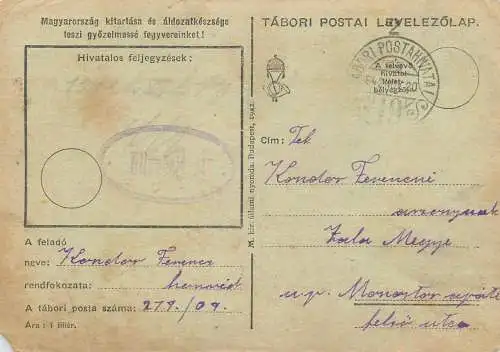 Magyarország kitartása és áldozatkészsége
teszi győzelmessé fegyvereinket!
Hivatalos feljegyzések:
A feladó
neve: Kondor Ferenc
rendfokozata: honvéd
A tábori posta száma: 219./04.
Ára: 1 fillér.
M. kir. állami nyomda. Budapest, 1942.
TÁBORI POSTAI LEVELEZŐLAP.
TÁBORI POSTAHIVATAL
A felvevő
hivatal
kelet-
bélyegzője
Cím: Tek
Kondor Ferencné
asszonynak
Zala Megye
u.p. Monostor
felső utca